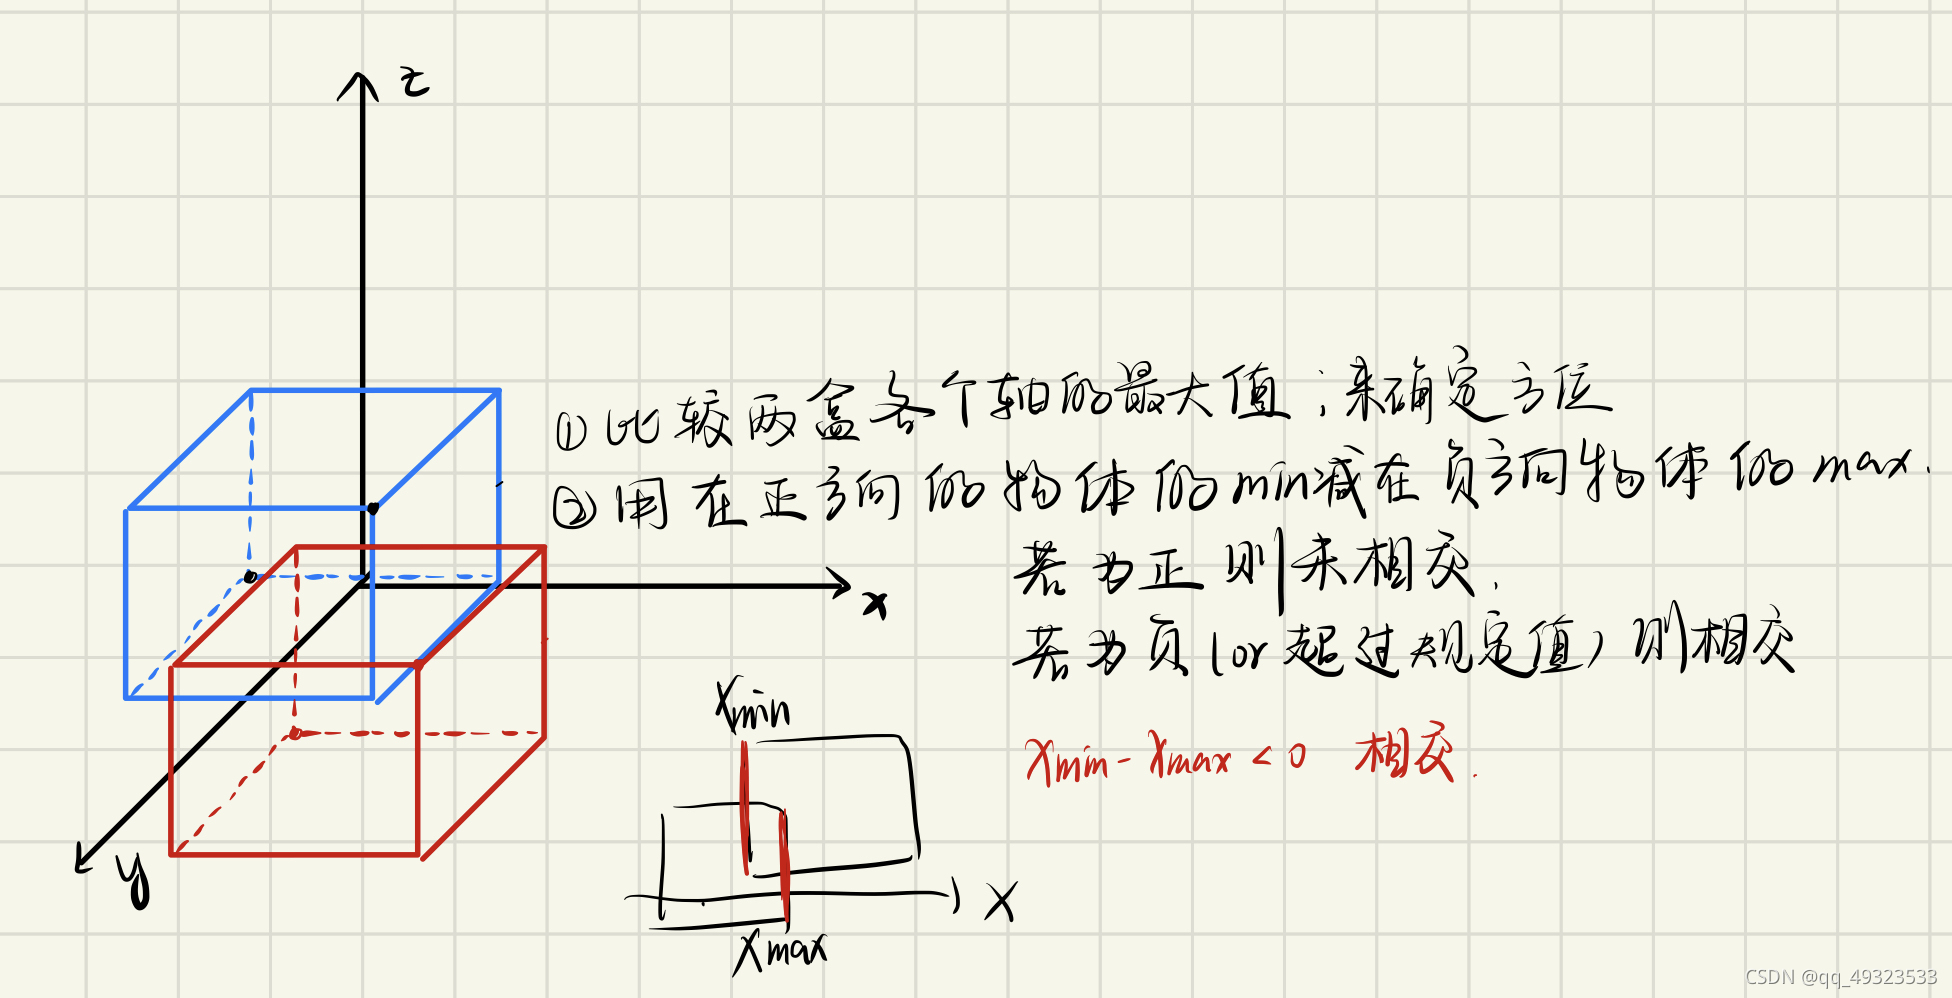 z
①比较两盒各个轴的最大值;来确定方位
②用在正方向的物体的min减在负方向物体的max.
若为正则未相交.
x
若为负(or超过规定值)则相交
Xmin
Xmin-Xmax<0 相交.
y
X
Xmax
CSDN @qq_49323533